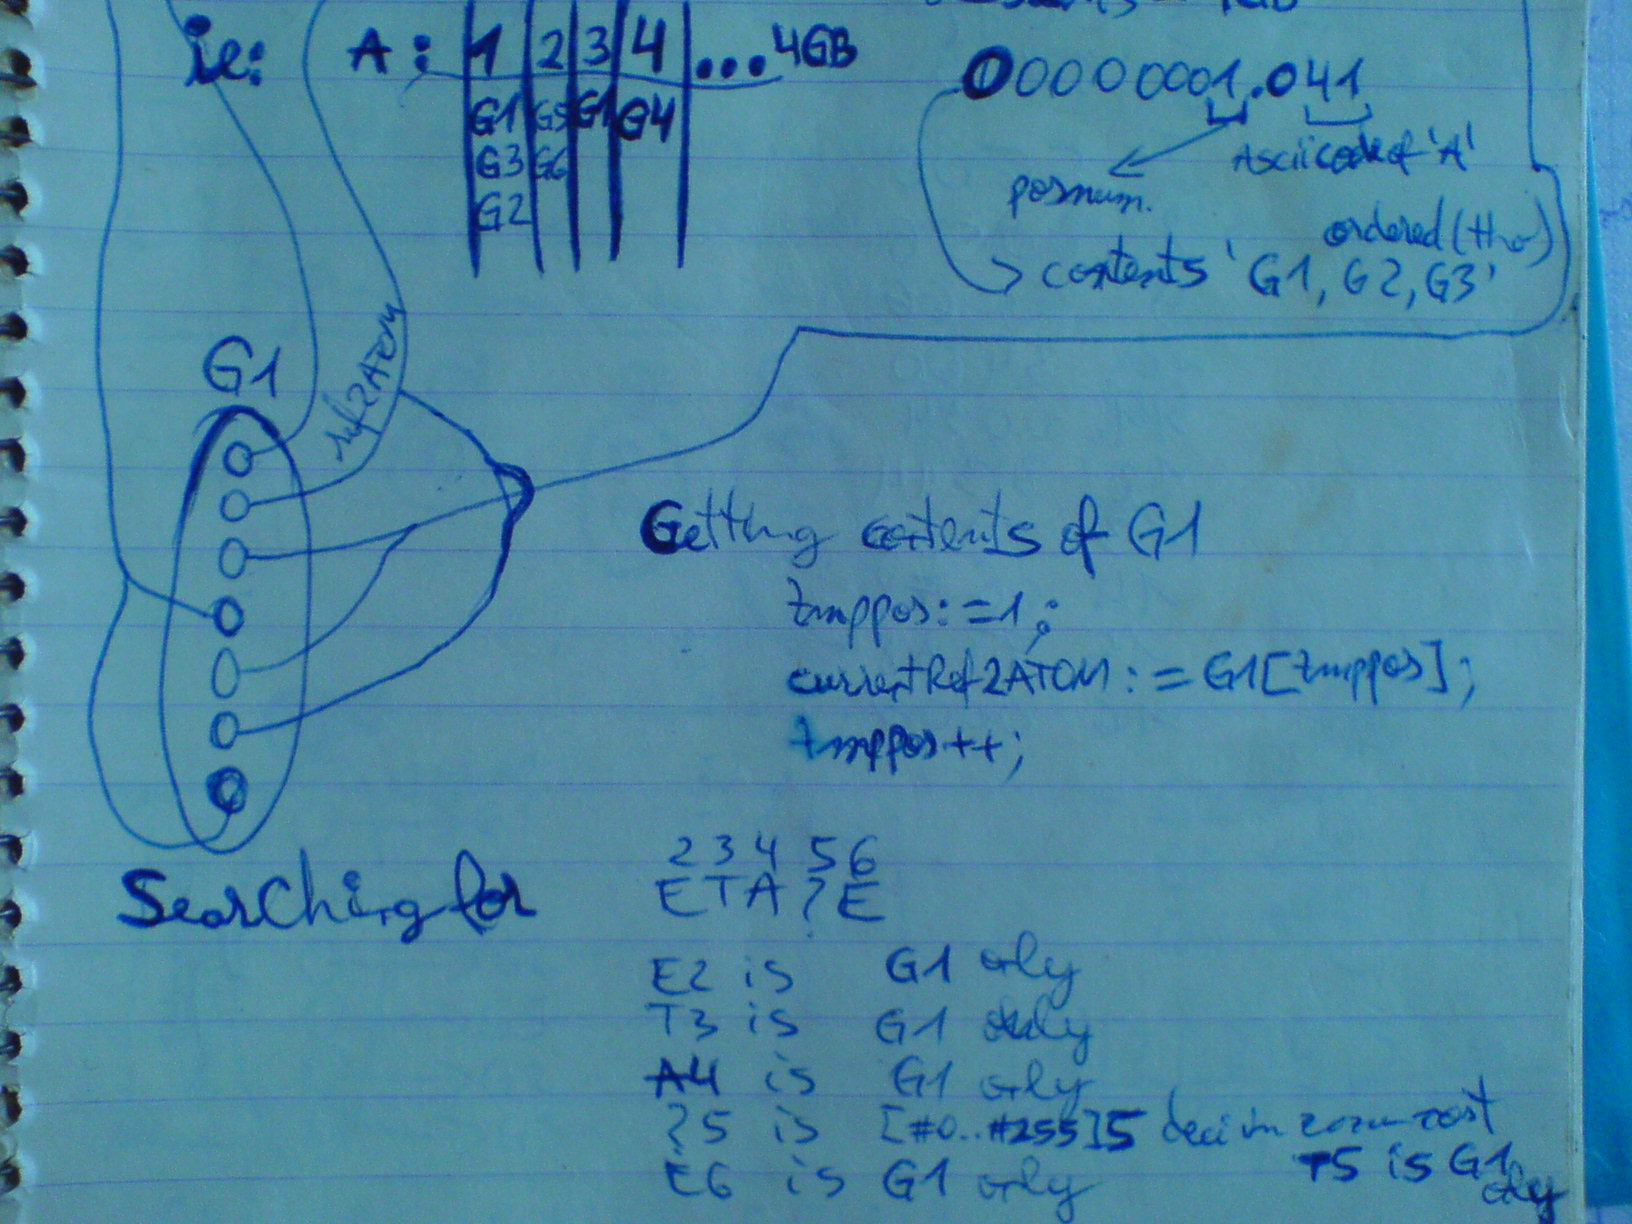 ie: A: 1 2 3 4 ... 4GB
G1 G5 G1 G4
G3 G6
G2
000000001.041
posnum.
Ascii code of 'A'
ordered (tho)
contents 'G1, G2, G3'
G1
ref2ATOM
Getting contents of G1
tmppos:=1;
currentRef2ATOM:=G1[tmppos];
tmppos++;
Searching for
2 3 4 5 6
E T A ? E
E2 is G1 only
T3 is G1 only
A4 is G1 only
?5 is [#0..#255]5
T5 is G1 only
E6 is G1 only